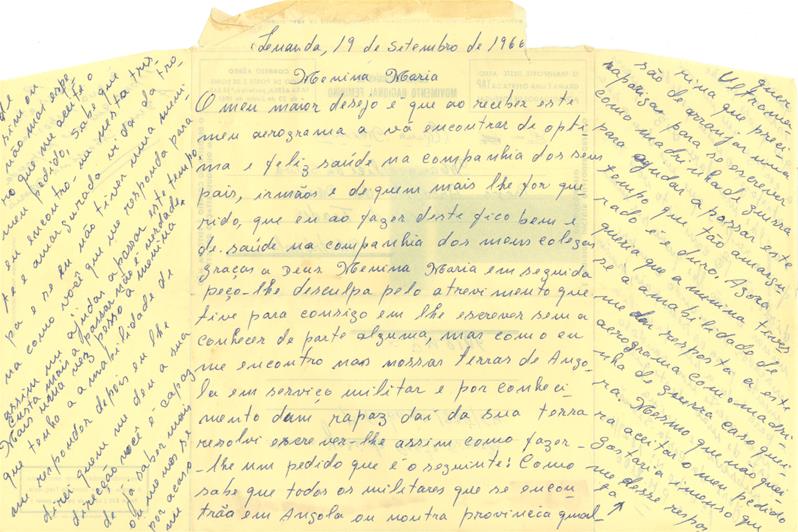 Luanda, 19 de setembro de 1966
Menina Maria
O meu maior desejo é que ao receber este
meu aerograma a vá encontrar de opti-
ma e feliz saúde na companhia dos seus
pais, irmãos e de quem mais lhe for que
rido, que eu ao fazer deste fico bem e
de saúde na companhia dos meus colegas
graças a Deus Menina Maria em seguida
peço-lhe desculpa pelo atrevimento que
tive para consigo em lhe escrever sem a
conhecer de parte alguma, mas como eu
me encontro nas nossas terras de Ango-
la em serviço militar e por conheci-
mento dum rapaz daí da sua terra
resolvi escrever-lhe assim como fazer-
-lhe um pedido que é o seguinte: Como
sabe que todos os militares que se encon-
trão em Angola ou noutra provincia qual-
quer
Ultrama-
rina que preci-
são de arranjar uma
rapariga para se escrever
como madrinha de guerra
para ajudar a passar este
tempo que tão amargu-
rado é e duro. Agora
queria que a menina tives
se a amabilidade de
me dar resposta a este
aerograma como madri
nha de guerra caso quei-
ra. Mesmo que não quei-
ra aceitar o meu pedido
gostaria imenso que
me desse respos
ta
de
sim ou
não mais espe
ro que me aceite o
meu pedido, sabe que
eu encontro-me nesta tris-
te e amargurada vida da tro,
pa e se eu não tiver uma meni
na como você que me responda para
assim me ajudar a passar este tempo
Custa mais a passar não é verdade
Mais uma vez peço à menina
que tenha a amabilidade de
me responder depois eu lhe
direi quem me deu a sua
direção você é capaz
de já saber mais
ou menos se
por acaso
me